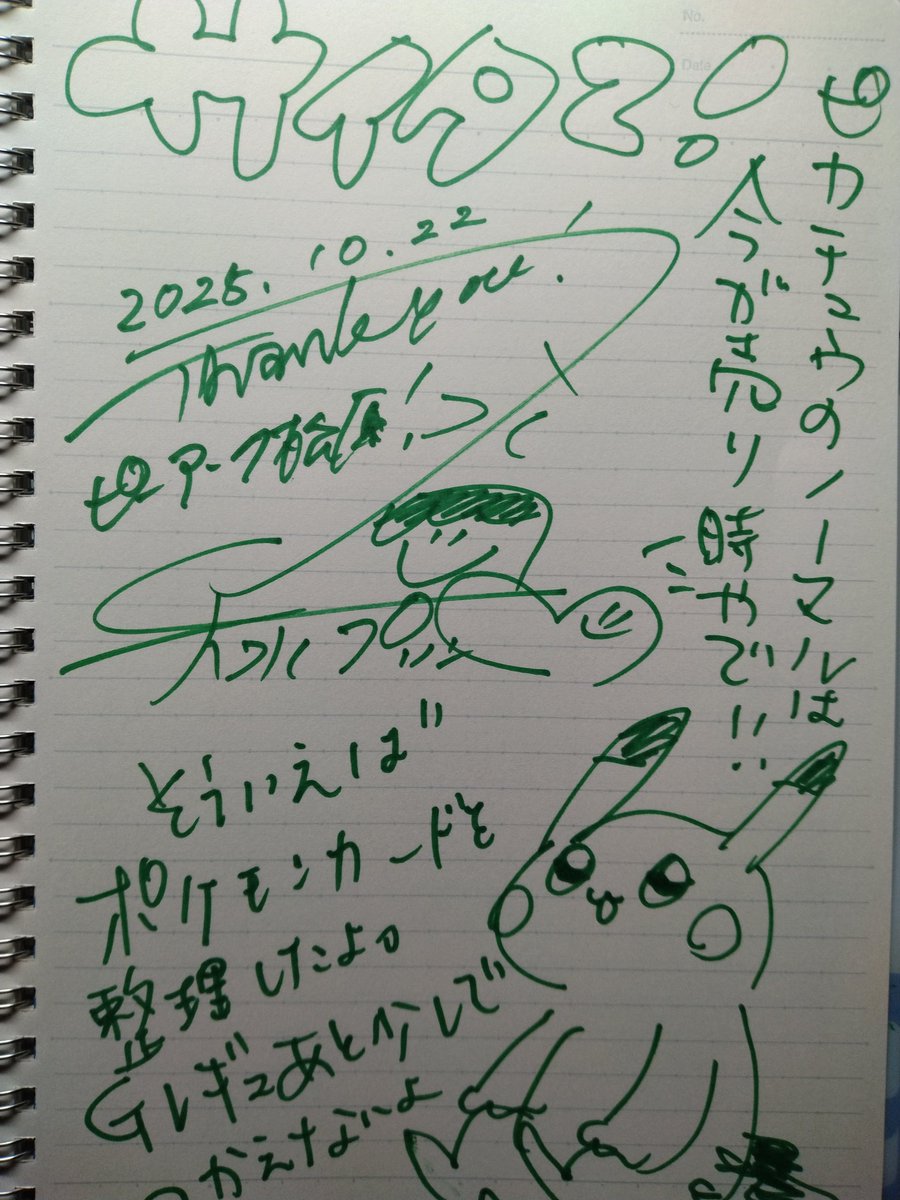 サイタ2.0
No.
Date
ピカチュウのノーマルは
今が売り時やで!!
2025.10.22
Thank you!
そういえば
ポケモンカードを
整理したよ。
Gレギュあと少しで
つかえないよ